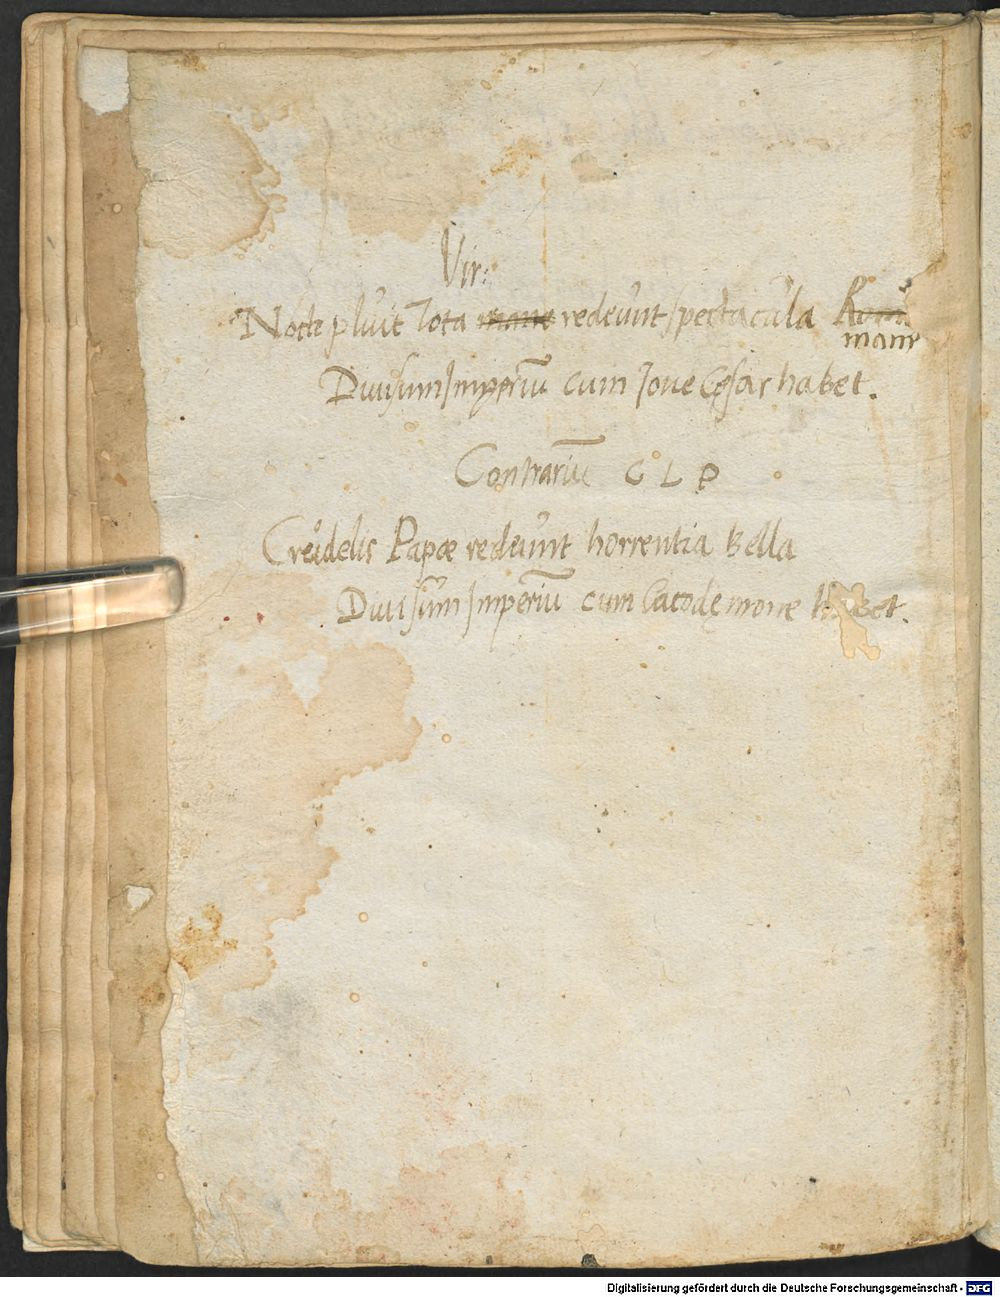 Vir:
Nocte pluit Tota mane redeunt spectacula Romæ
mane
Diuisum Imperiũ cum Joue Cęsar habet.
Contrariũ C L P
Creudelis Papæ redeunt horrentia Bella
Diuisum Imperiũ cum Cacodęmone habet.
Digitalisierung gefördert durch die Deutsche Forschungsgemeinschaft - DFG